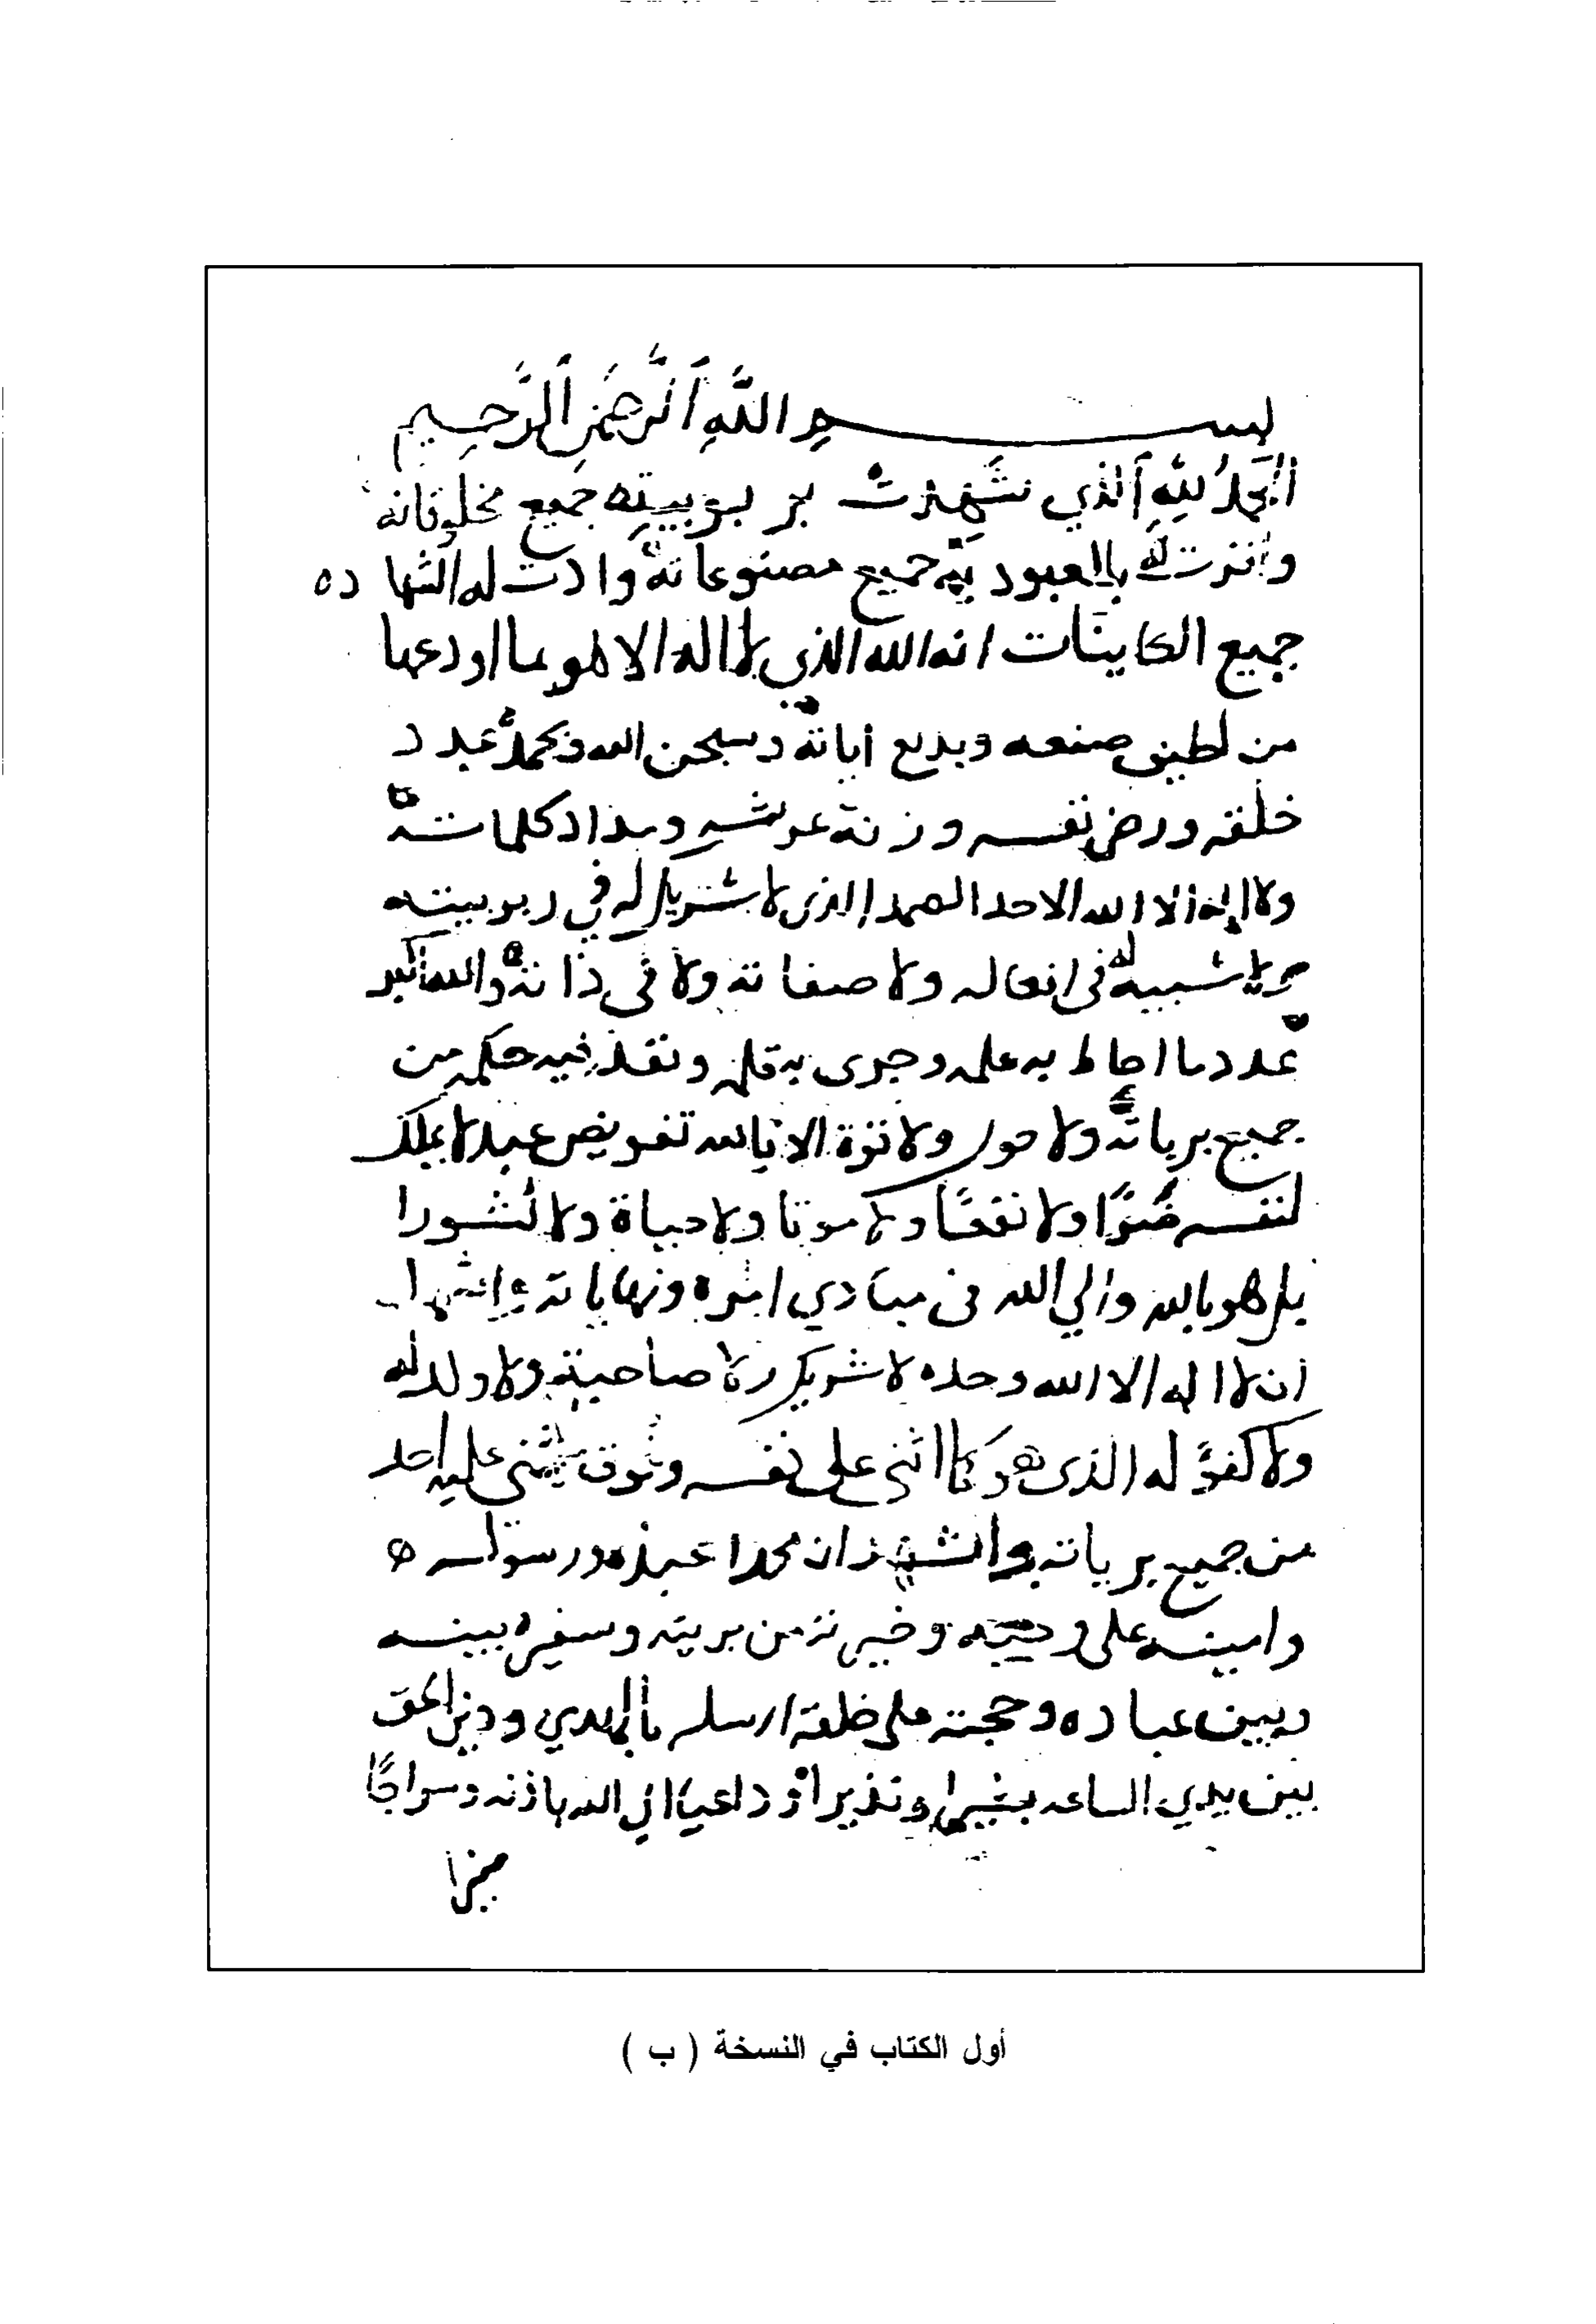 بسم اللَّهِ الرَّحمن الرَّحيم
الحمدُ للهِ الذي شهدت بربوبيته جميع مخلوقاته
واقرت له بالعبودية جميع مصنوعاته وادت له الشها ده
جميع الكاينات انه الله الذي لا اله الا هو بما اودعها
من لطيف صنعه وبديع اياته وسبحن الله وبحمده عدد
خلقه ورضى نفسه وزنة عرشه ومداد كلماته
ولا إله الا الله الاحد الصمد الذي لا شريك له في ربوبيته
ولا شبيه له في افعاله ولا صفاته ولا في ذاته والله اكبر
عدد ما احاط به علمه وجرى به قلمه ونفذ فيه حكمه من
جميع برياته ولا حول ولا قوة الا بالله تفويض عبد لا يملك
لنفسه ضرًا ولا نفعًا ولا موتا ولا حياة ولا نشورا
بل هو بالله والي الله في مبادي امره ونهاياته واشهد
ان لا اله الا الله وحده لا شريك له ولا صاحبة ولا ولد له
ولا كفؤ له الذي هو كما اثنى على نفسه وفوق ما يثني عليه احد
من جميع برياته واشهد ان محمدا عبده ورسوله
وامينه على وحيه وخيرته من بريته وسفيره بينه
وبين عباده وحجته على خلقه ارسله بالهدي ودين الحق
بين يدي الساعه بشيرا ونذيرا وداعيا الى الله باذنه وسراجًا
منيرا
أول الكتاب في النسخة ( ب )